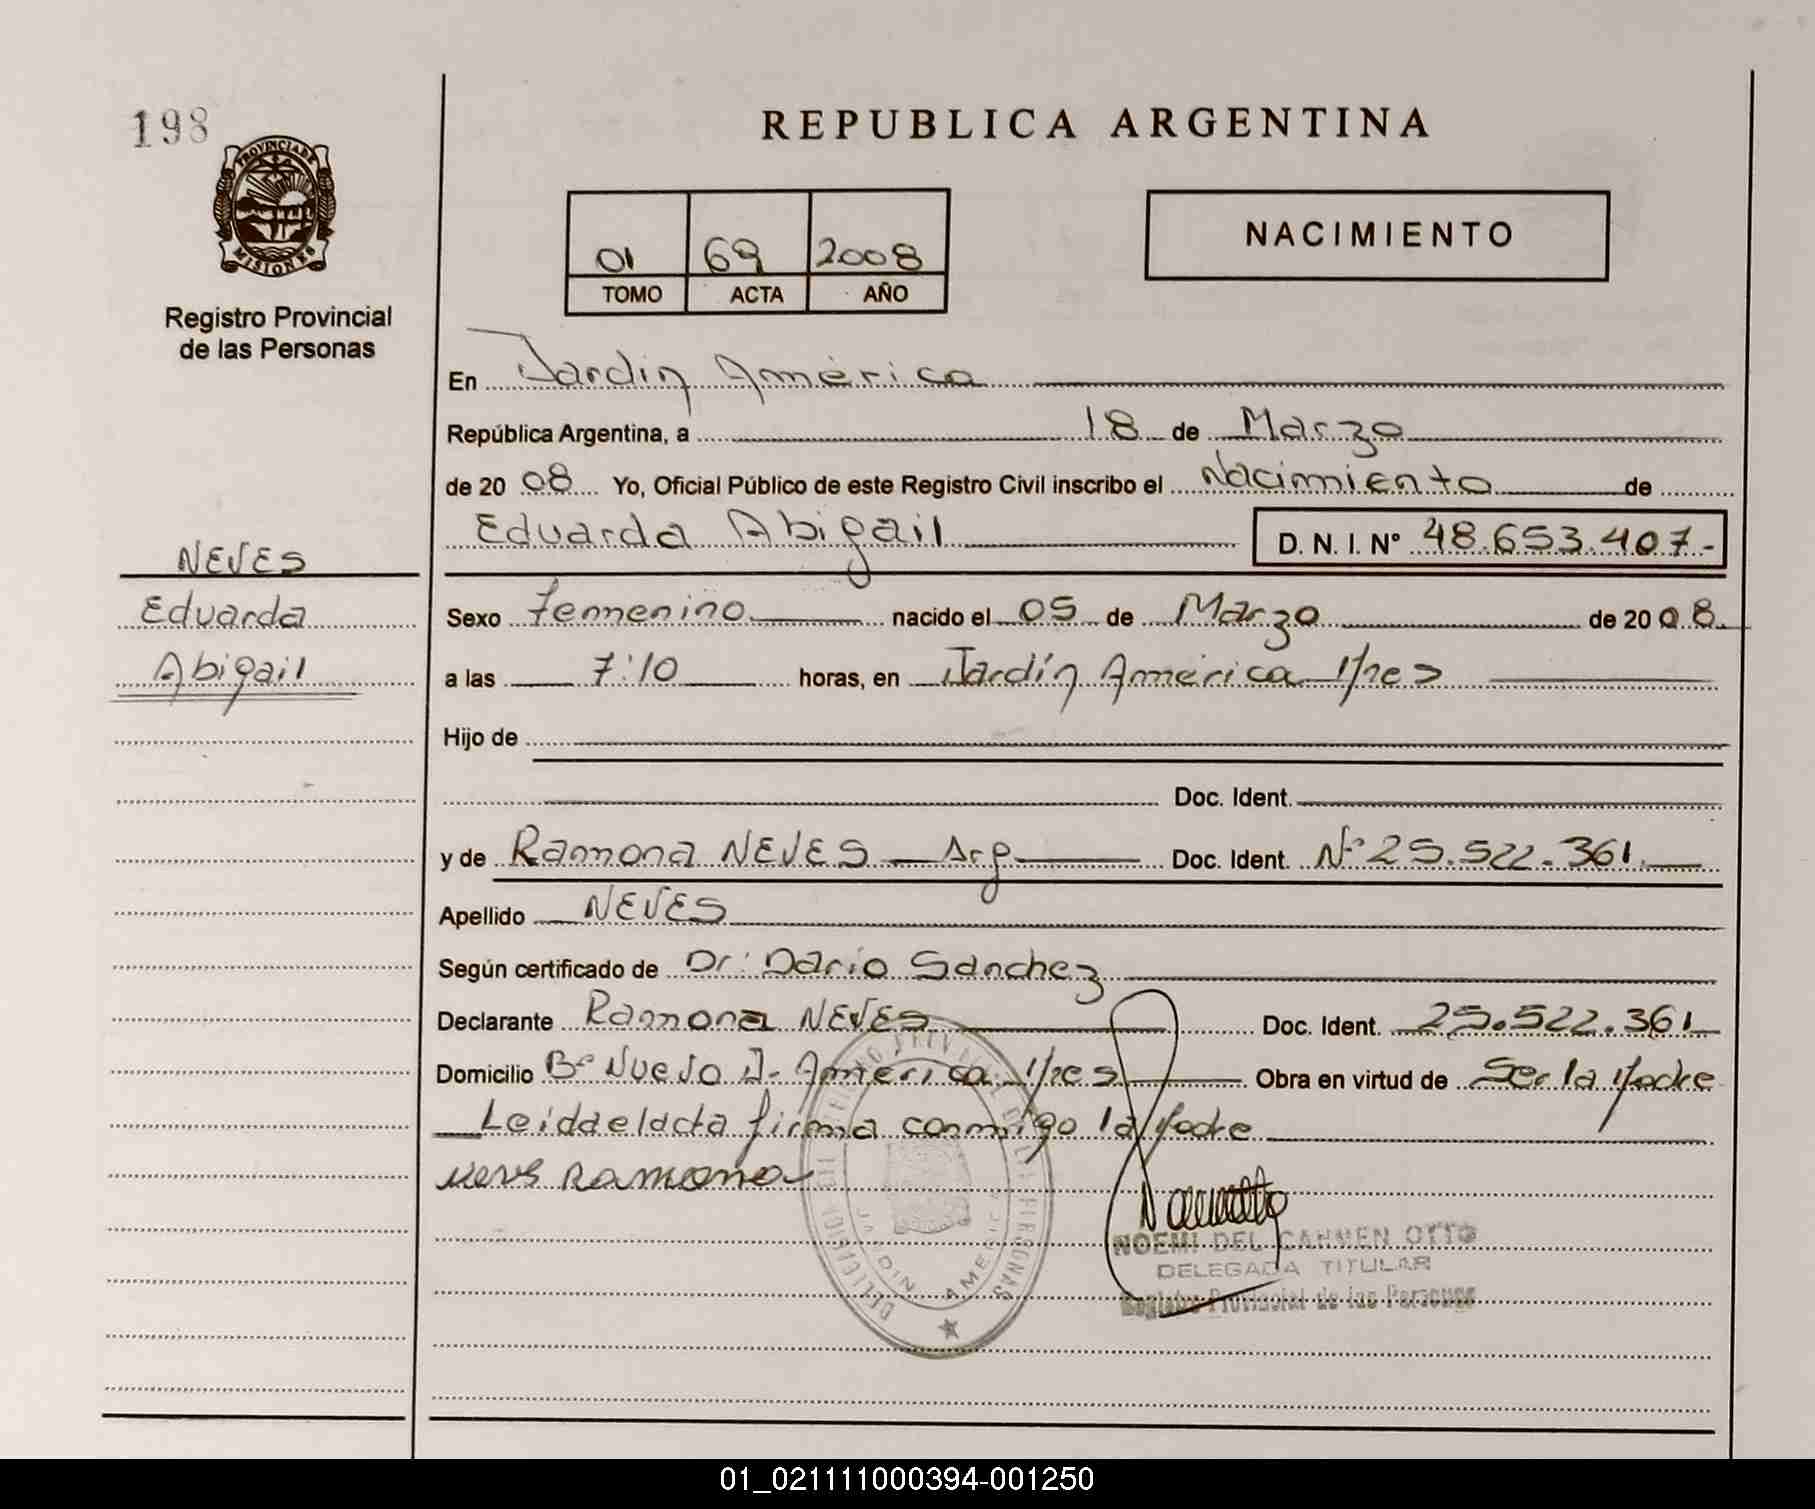 198
PROVINCIA DE
MISIONES
Registro Provincial
de las Personas
NEVES
Eduarda
Abigail
REPUBLICA ARGENTINA
01 69 2008
TOMO ACTA AÑO
NACIMIENTO
En Jardín América
República Argentina, a 18 de Marzo
de 20 08 Yo, Oficial Público de este Registro Civil inscribo el Nacimiento de
Eduarda Abigail D. N. I. Nº 48.653.407.-
Sexo Femenino nacido el 05 de Marzo de 20 08.
a las 7:10 horas, en Jardín América
Hijo de
Doc. Ident.
y de Ramona NEVES Arg Doc. Ident. Nº 25.522.361.
Apellido NEVES
Según certificado de Dr. Dario Sanchez
Declarante Ramona NEVES Doc. Ident. 25.522.361
Domicilio Bº Nuevo J. América Obra en virtud de Ser la Madre
Leida el acta firma conmigo la Madre
Neves Ramona
JARDIN AMERICA
NOEMI DEL CARMEN OTTO
DELEGADA TITULAR
Registro Provincial de las Personas
01_021111000394-001250